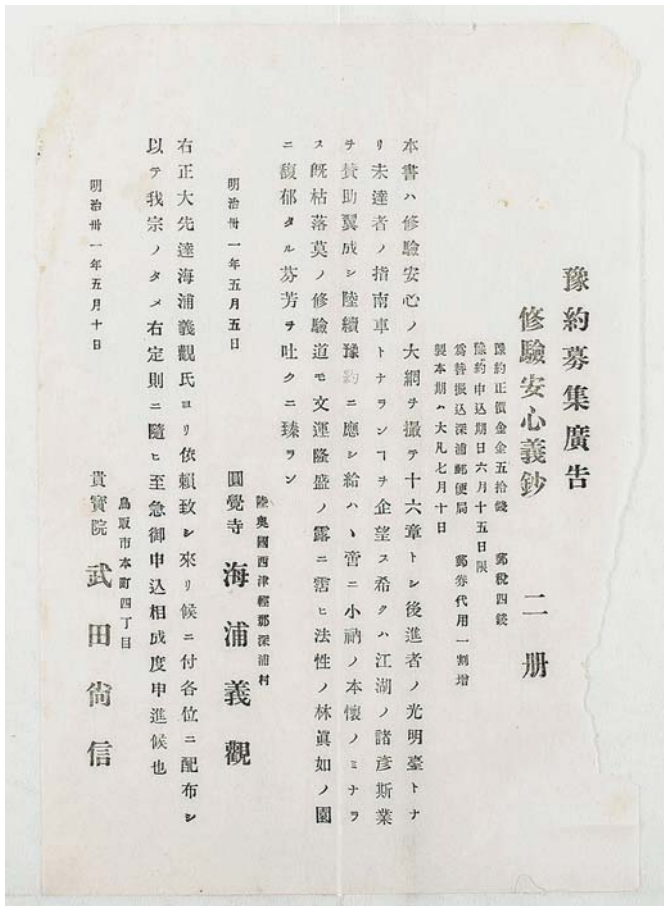 豫約募集廣告
修驗安心義鈔　二册
豫約正價金五拾錢　郵稅四錢
豫約申込期日六月十五日限
爲替振込深浦郵便局　郵券代用一割增
製本期ハ大凡七月十日
本書ハ修驗安心ノ大綱ヲ撮テ十六章トシ後進者ノ光明臺トナ
リ未達者ノ指南車トナランヿヲ企望ス希クハ江湖ノ諸彥斯業
ヲ賛助翼成シ陸續豫約ニ應シ給ハヽ啻ニ小衲ノ本懷ノミナラ
ス既枯落莫ノ修驗道モ文運隆盛ノ露ニ霑ヒ法性ノ林眞如ノ園
ニ馥郁タル芬芳ヲ吐クニ臻ラン
明治卅一年五月五日
陸奥國西津輕郡深浦村
圓覺寺　海浦義觀
右正大先達海浦義觀氏ヨリ依賴致シ來リ候ニ付各位ニ配布シ
以テ我宗ノタメ右定則ニ隨ヒ至急御申込相成度申進候也
明治卅一年五月十日
鳥取市本町四丁目
貴寶院　武田尙信